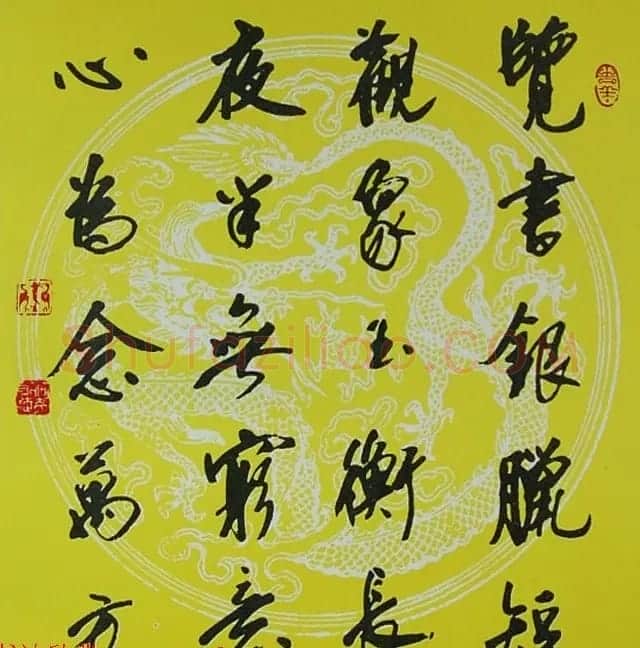 覽書銀臘短
觀象玉衡長
夜半無窮意
心當念萬方
shufaziliao.com